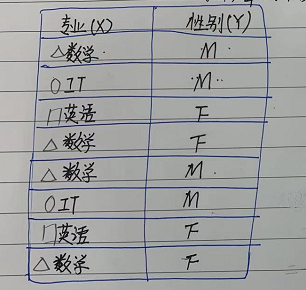 专业(X) 性别(Y)
△数学 M
○IT M
□英语 F
△数学 F
△数学 M
○IT M
□英语 F
△数学 F